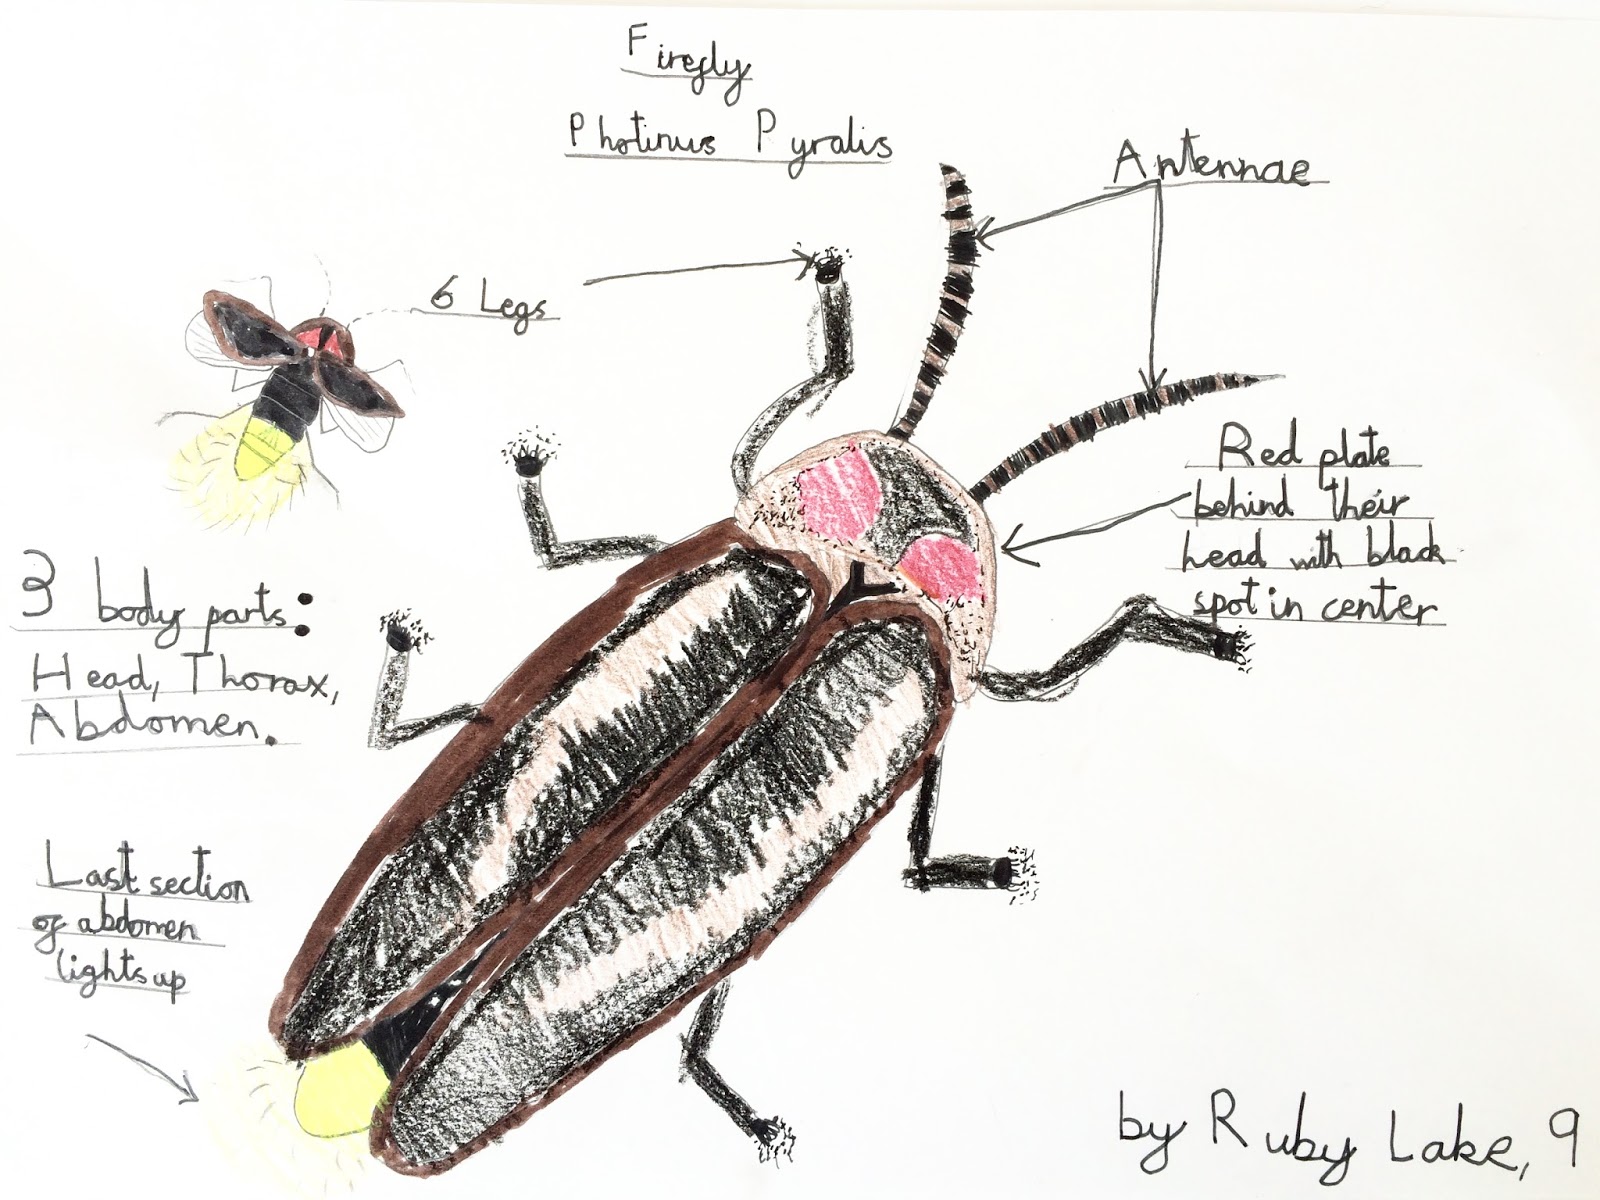 Firefly
Photinus Pyralis
Antennae
6 Legs
Red plate
behind their
head with black
spot in center
3 body parts:
Head, Thorax,
Abdomen.
Last section
of abdomen
lights up
by Ruby Lake, 9